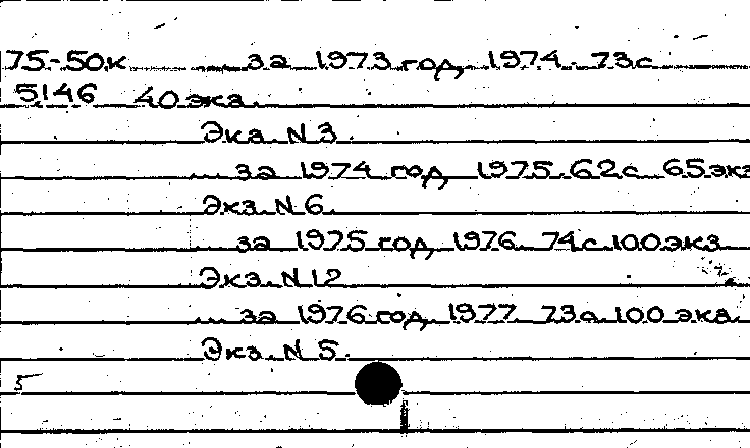 75-50к ... за 1973 год, 1974. 73с
5146 40 экз.
Экз. N 3.
... за 1974 год, 1975. 62с 65экз
Экз. N 6.
... за 1975 год, 1976. 74с. 100 экз
Экз. N 12
... за 1976 год, 1977. 73с. 100 экз.
Экз. N 5.
5